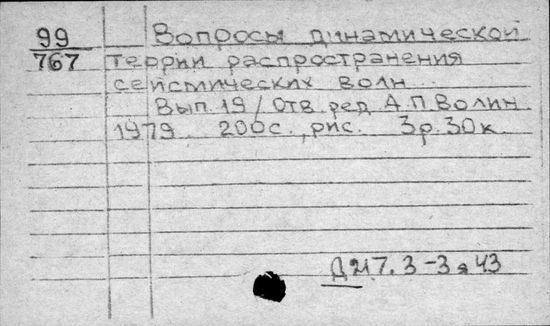 99 Вопросы динамической
767 террии распространения
сейсмических волн.
Вып. 19 / Отв. ред. А.П.Волин
1979 200с., рис. 3р.30к.
Д217.3-3я43